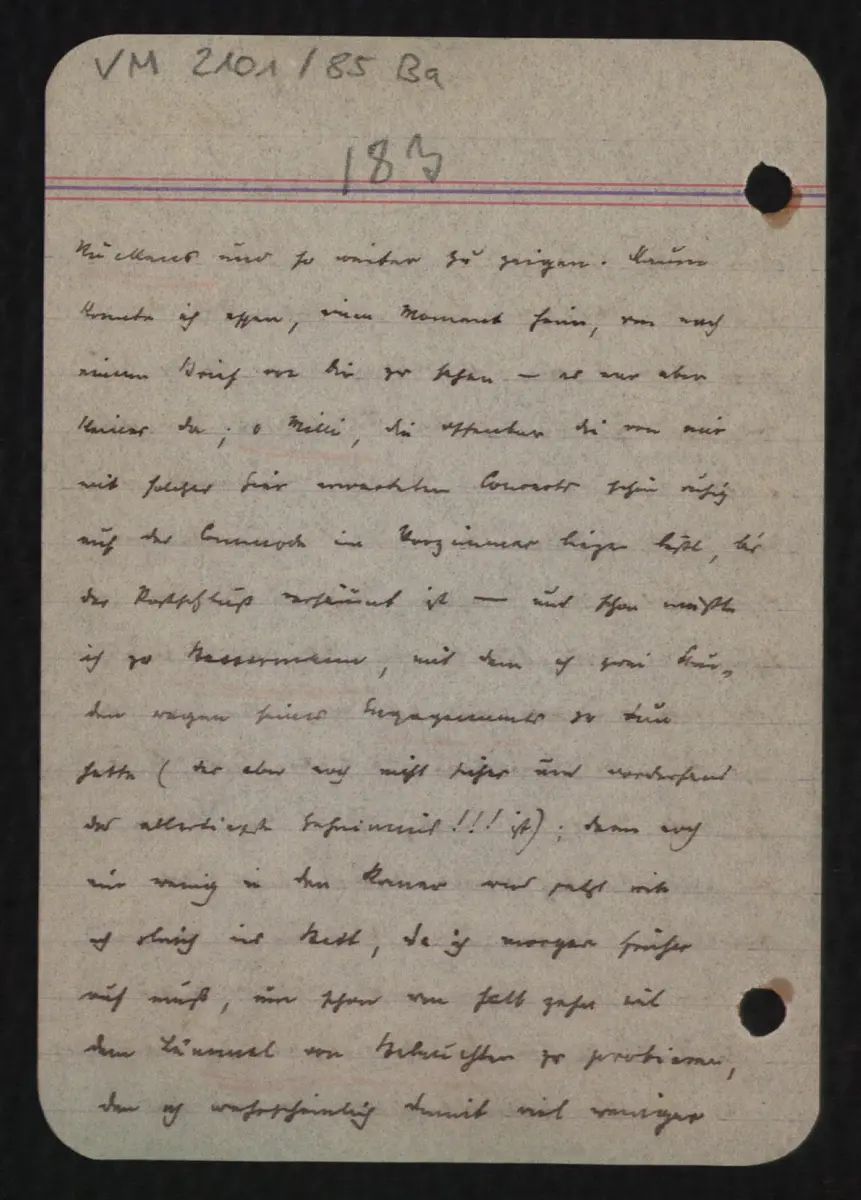 VM 2101/85 Ba
183
und so weiter zu zeigen. Kaum
konnte ich essen, einen Moment heim, um nach
einem Brief von Dir zu sehen — es war aber
keiner da; o Milli, die offenbar die von mir
mit solcher Gier erwarteten Couverts schön ruhig
auf der Commode im Vorzimmer liegen läßt, bis
der Postschluß versäumt ist — und schon mußte
ich zu Bassermann, mit dem ich zwei Stun-
den wegen seines Engagements zu tun
hatte (das aber noch nicht sicher und vorderhand
das allertiefste Geheimnis!!! ist); dann noch
ein wenig in den und jetzt
ich gleich ins Bett, da ich morgen früher
auf muß, um schon um halb zehn mit
dem Lümmel von Beleuchter zu probieren,
den ich wahrscheinlich damit viel weniger